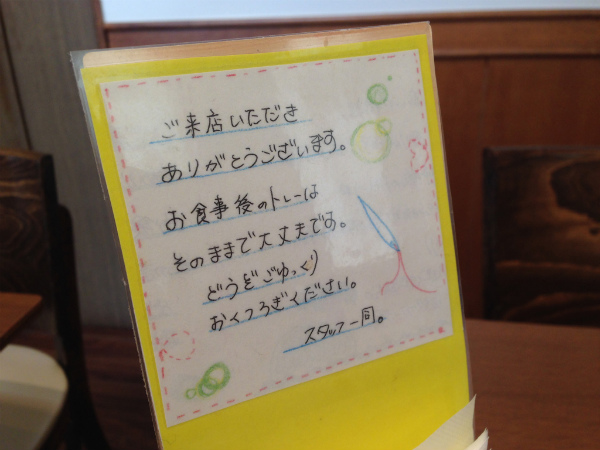 ご来店いただき
ありがとうございます。
お食事後のトレーは
そのままで大丈夫です。
どうぞごゆっくり
おくつろぎください。
スタッフ一同。